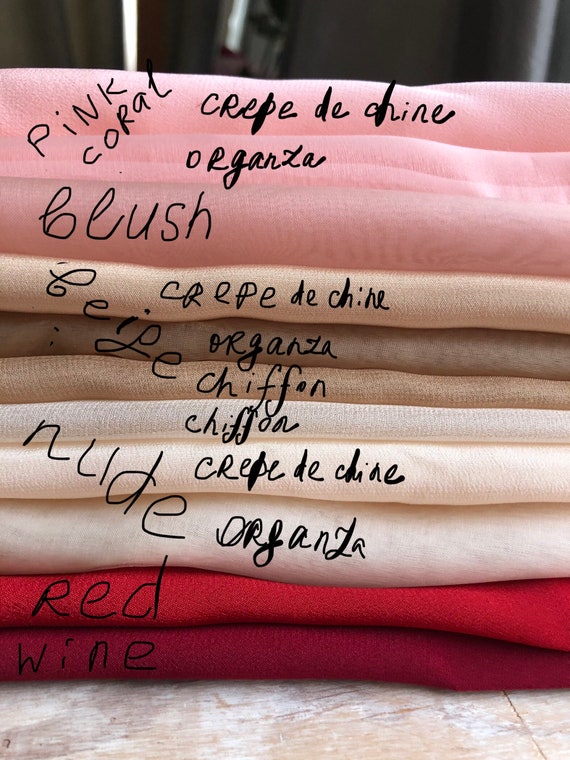 PINK CORAL
CREPE de chine
ORganza
blush
beige
CREPE de chine
ORganza
chiffon
nude
chiffon
CREPE de chine
ORganza
Red
wine